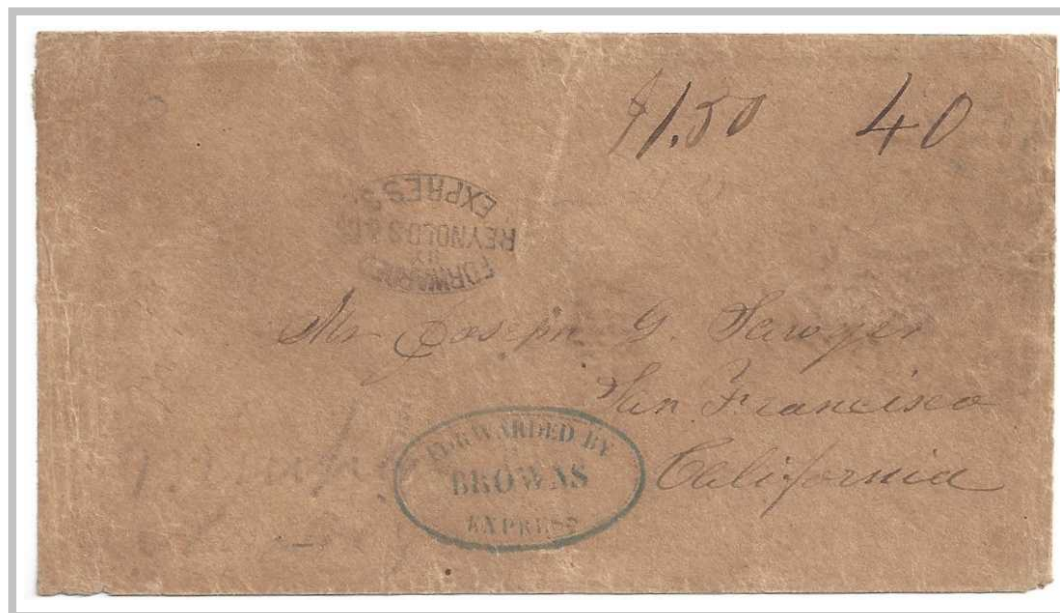 $1.50 40
FORWARD
BY
REYNOLDS &
EXPRESS
Mr Joseph G. Sawyer
San Francisco
California
FORWARDED BY
BROWNS
EXPRESS